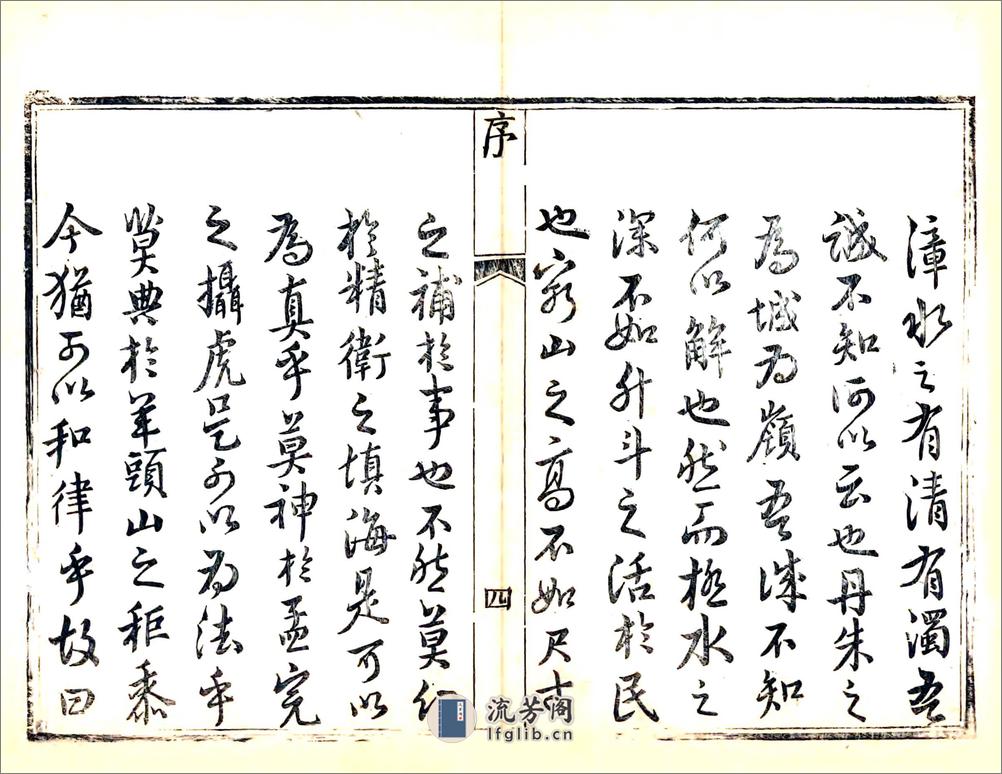 漳水之有清有濁吾
誠不知何以云也丹朱之
為城為嶺吾誠不知
何以解也然而極水之
深不如升斗之活於民
也窮山之高不如尺寸
序
四
之補於事也不然莫仁
於精衛之填海是可以
為真乎莫神於孟完
之攝虎是可以為法乎
莫典於羊頭山之秬黍
今猶可以和律乎故曰
流芳阁
lfglib.cn